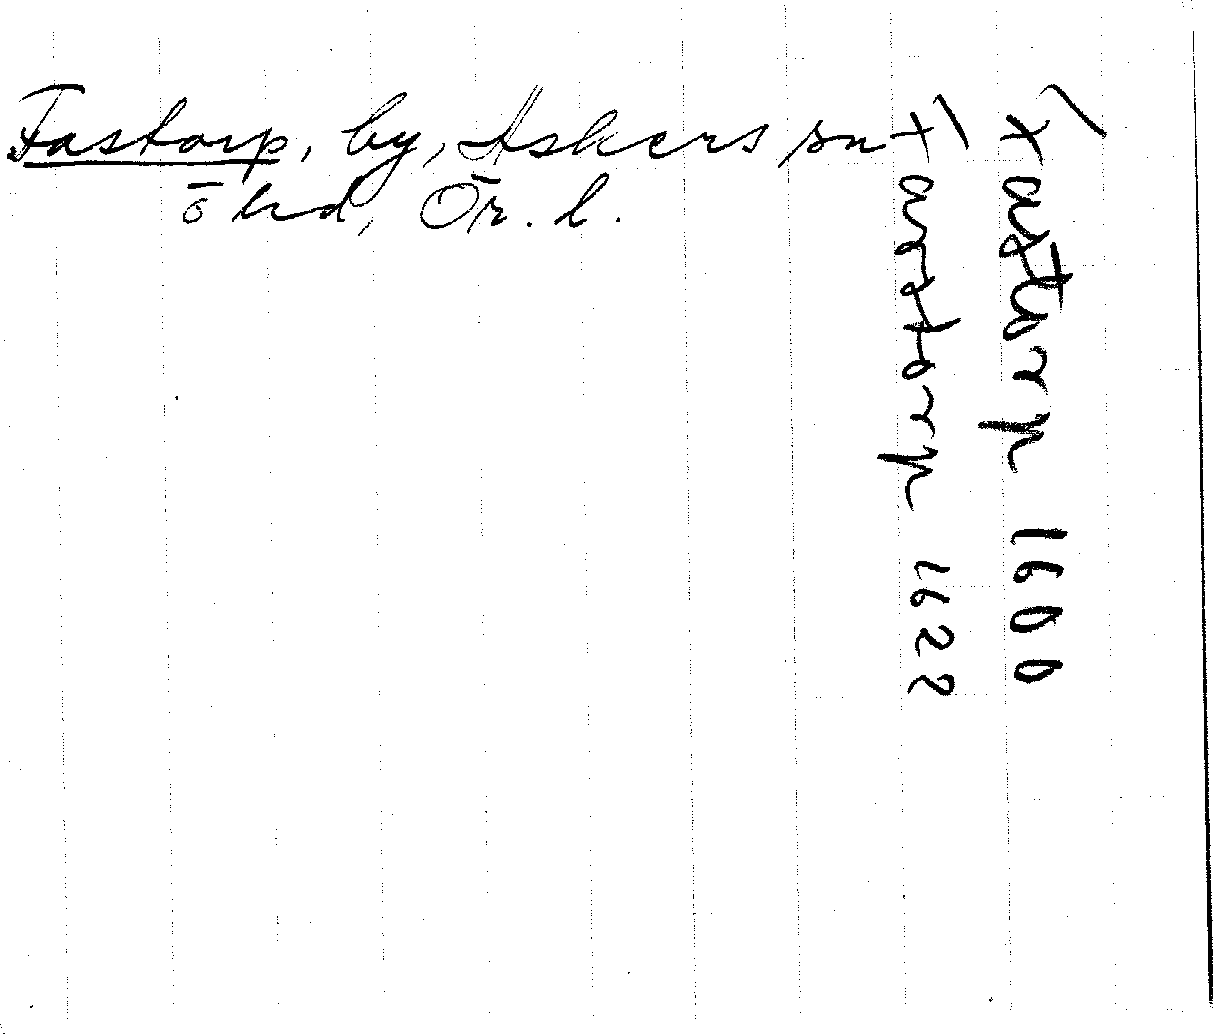 Fastorp, by, Askers sn
ō hd, Ōr. l.
Fastorp 1600
Farstorp 1622